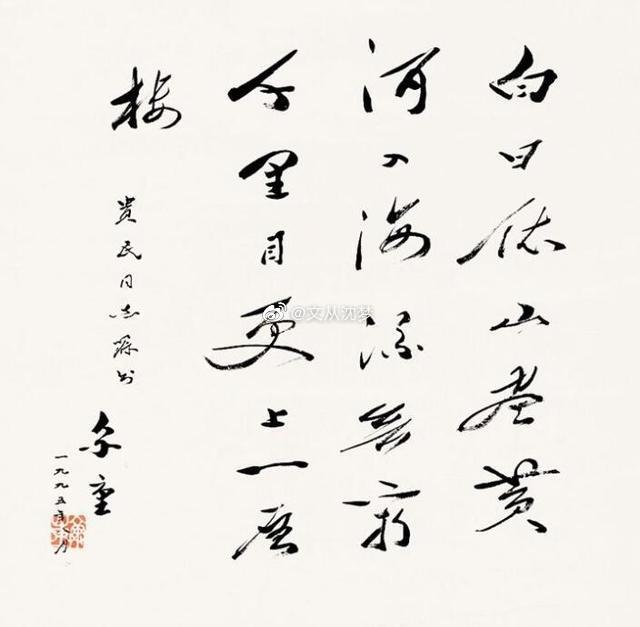 白日依山尽黄
河入海流欲穷
千里目更上一层
楼
贵民同志
一九九五年
@文从沈梦